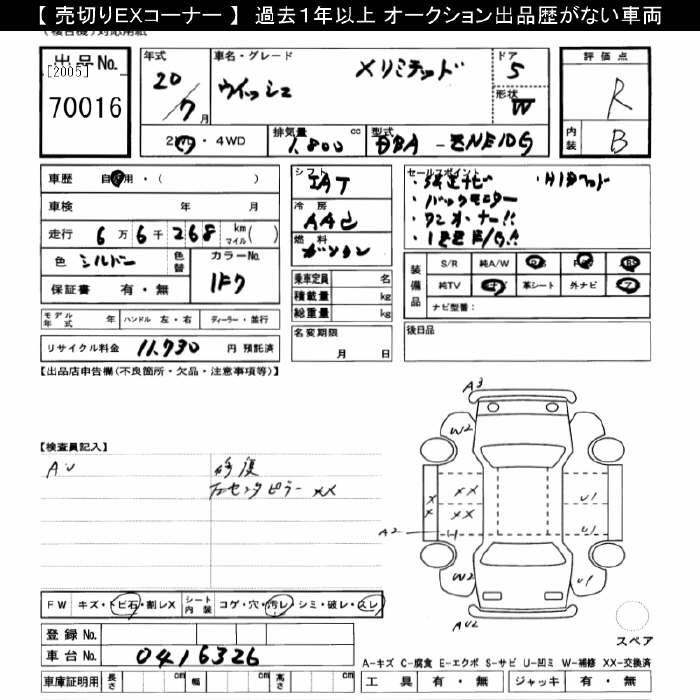 【 売切りEXコーナー 】 過去１年以上 オークション出品歴がない車両
出品No.
[2005]
70016
年式
20/7月
車名・グレード
ウイッシュ Xリミテッド
ドア
5
形状
W
評価点
R
内装
B
2WD・4WD
排気量
1,800 cc
型式
DBA - ZNE10G
車歴 自家用・( )
車検 年 月
走行 6万6千268 km マイル( )
色 シルバー
色替
カラーNo.
1F7
保証書 有・無
シフト
IAT
冷房
AAC
燃料
ガソリン
乗車定員 名
積載量 kg
総重量 kg
セールスポイント
・バックモニター
・ワンオーナー!!
装備品
S/R 純A/W
純TV 革シート 外ナビ
ナビ型番:
モデル年式 年 ハンドル 左・右 ディーラー・並行
リサイクル料金 11,730 円 預託済
名変期限
月 日
後日品
【出品店申告欄(不良箇所・欠品・注意事項等)】
【検査員記入】
AU
修復
センタピラー XX
A3
W2
XX
XX
X
X
U1
U1
A2
U1
W2
U1
AU2
スペア
FW キズ・トビ石・割レX
シート内装 コゲ・穴・汚レ・シミ・破レ・スレ
登録 No.
車台 No. 0416326
車庫証明用 長さ cm 幅 cm 高さ cm
A-キズ C-腐食 E-エクボ S-サビ U-凹ミ W-補修 XX-交換済
工具 有・無 ジャッキ 有・無